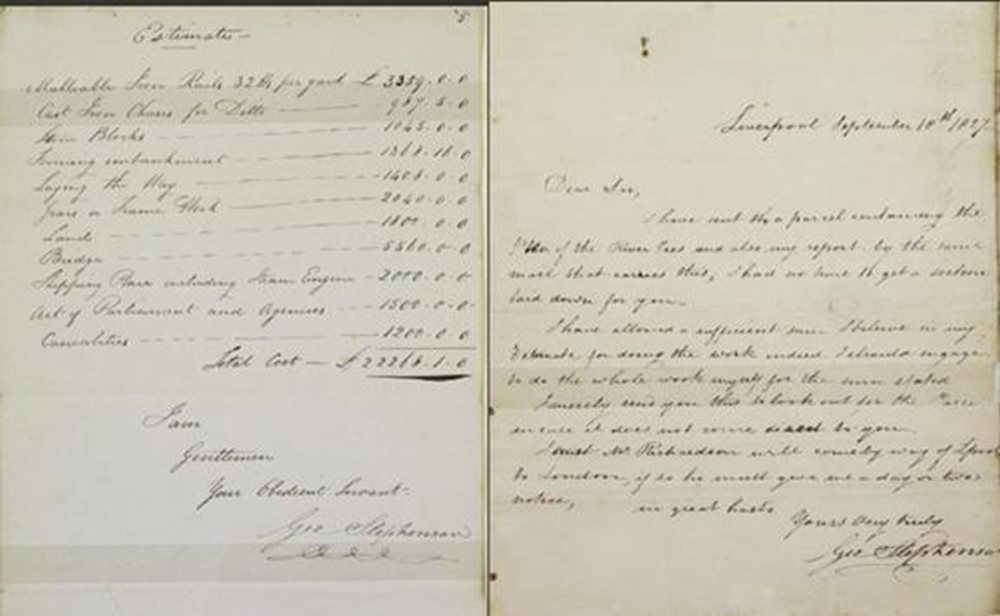 5
Estimate —
Malleable Iron Rails 32 lb per yard £ 3359.0.0
Cast Iron Chairs for Ditto 967.5.0
Stone Blocks 1045.0.0
Forming embankment 1868.16.0
Laying the Way 1406.0.0
or Frame Work 2040.0.0
Land 1800.0.0
Bridge 5560.0.0
Shipping Place including Steam Engine - 2000.0.0
Act of Parliament and Agencies 1500.0.0
Casualities 1200.0.0
Total Cost — £22266.1.0
I am
Gentlemen
Your Obedient Servant
Geo Stephenson
Liverpool September 10th 1827
Dear Sir,
I have sent the a parcel containing the
Plan of the River Tees and also my report by the same
mail that carries this, I had no time to get a section
laid down for you
I have allowed a sufficient sum I believe in my
Estimate for doing the work indeed I should engage
to do the whole work myself for the sum stated
I merely send you this to look out for the Parcel
in case it does not come direct to you
I trust Mr Richardson will come by way of Lpool
to London, if so he must give me a day or two's
notice, in great haste
Yours very truly
Geo Stephenson